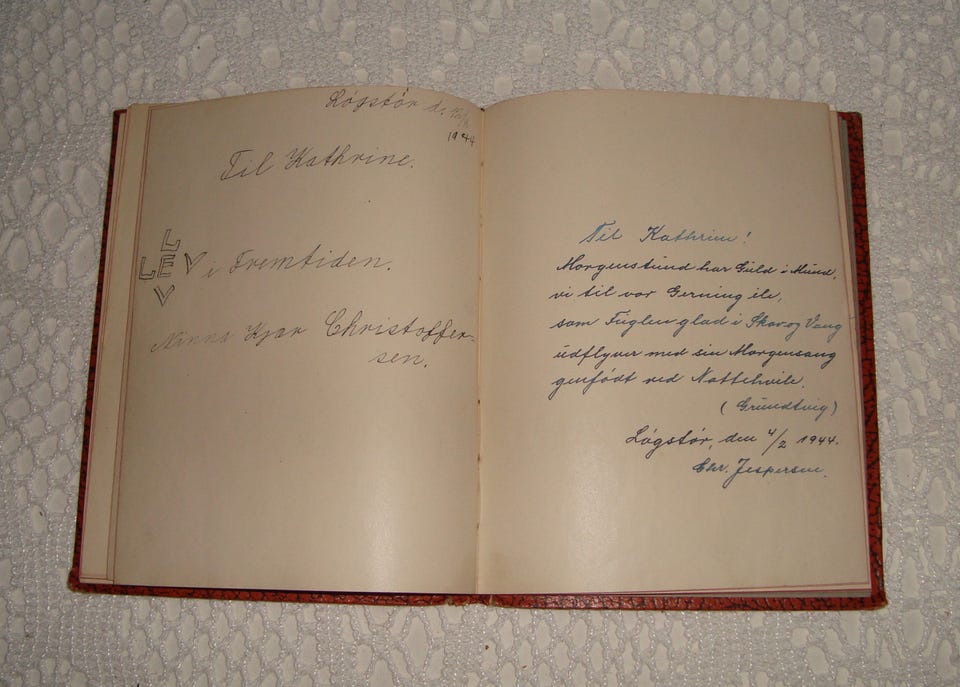 Løgstør d.
1944
Til Kathrine.
L
LEV i Fremtiden.
V
Ninna Kjær Christoffer-
sen.
Til Kathrine!
Morgenstund har Guld i Mund,
vi til vor Gerning ile,
som Fuglen glad i Skov og Vang
udflyver med sin Morgensang
genfødt ved Nattehvile.
(Grundtvig)
Løgstør, den 4/2 1944.
Chr. Jespersen.